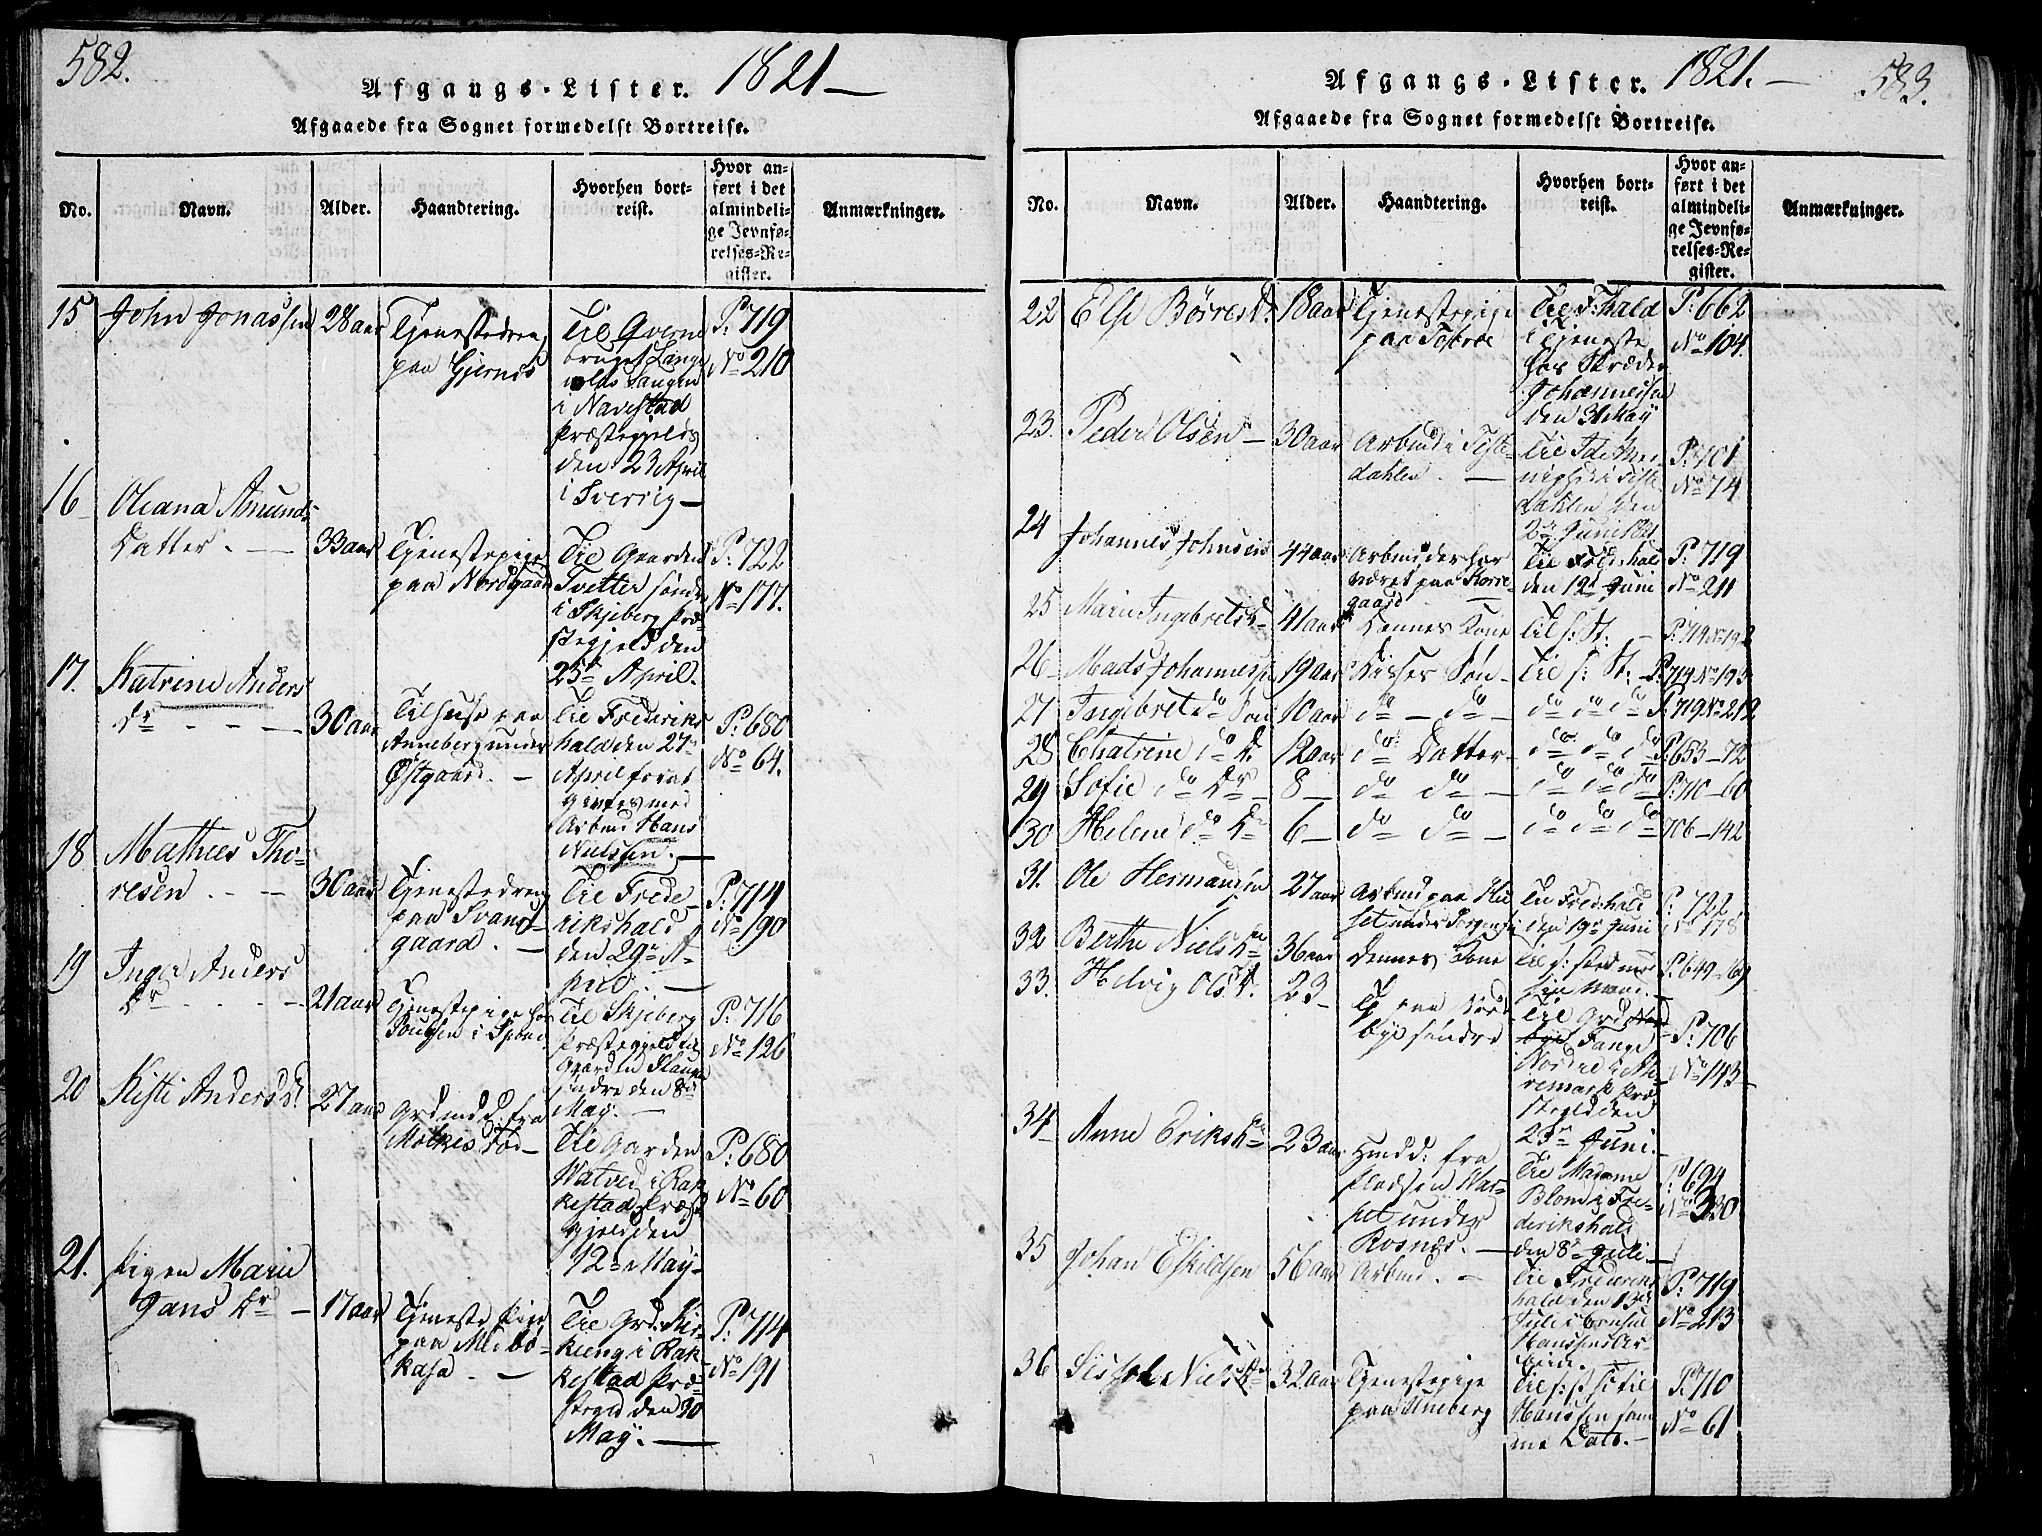 582.
Afgangs-Lister. 1821 —
Afgaaede fra Sognet formedelst Bortreise.
No.
Navn.
Alder.
Haandtering.
Hvorhen bort-
reist.
Hvor an-
ført i det
almindeli-
ge Jevnfø-
relses-Re-
gister.
Anmærkninger.
15
John Jonassen
28 aar
Tjenestedreng
paa Gjernes
Til Qverne
bruget Lange
i Navestad
Præstegjelds
den 23 April
i Sverrig —
P: 719
No 210
16
Oleana Amunds
Datter. —
33 aar
Tjenestepige
paa Nordgaard
Til Gaarden
Tvetter søndre
i Skjeberg Præ-
stegjeld den
25de April.
P: 722
No 177.
17.
Katrine Anders
Dr — — —
30 aar
Tilhuse paa
Anneberg under
Østgaard. —
Til Frederiks
hald den 27de
April for at
giftes med
Arbmd Hans
Nielssen. —
P: 680
No 64.
18
Mathees Tho-
resen. — —
30 aar
Tjenestedreng
paa Svans-
gaard. —
Til Frede-
rikshald
den 29de A-
pril. —
P: 714
No 190
19
Inger Anders
Dr — — —
21 aar
Tjenestepige hos
Til Skjeberg
Præstegjeld til
Gaarden
søndre den 8de
May. —
P: 716
No 126
20
Kisti Anders D.
27 aar
Grdmd D. fra
Molkes
Til Garden
Watved i Rak-
kestad Præste
gjeld den
12de May —
P: 680
No 60
21.
Pigen Marie
Jans Dr —
17 aar
Tjeneste Pige
paa Medbø-
kasa. —
Til Grd. Kir-
keeng i Rak-
kestad Præ-
stegld den 30
May. —
P: 714
No 191
583.
Afgangs-Lister. 1821. —
Afgaaede fra Sognet formedelst Bortreise.
No.
Navn.
Alder.
Haandtering.
Hvorhen bort-
reist.
Hvor an-
ført i det
almindeli-
ge Jevnfø-
relses-Re-
gister.
Anmærkninger.
22
Else Børres D.
18 aar
Tjenestepige
paa Tosteroe
Til F:hald
i Tjeneste
hos Skræder
Johannessen
den 31 May
P: 662
No 104.
23.
Peder Olsen —
30 aar
Arbmd i Tiste-
dahlen. —
Til Ide
i Tiste
dahlen den
2den Juni 1821
P: 701
No 74
24
Johannes Johnsen
44 aar
Arbmd der har
været paa Korre
gaard
Til Fredr:hald
den 19de Juni
P: 719
No 211
25
Marie Ingebrets D —
41 aar
Dennes Kone
Til s: St. —
P: 719 No 192
26
Mads Johannes S
19 aar
Disses Søn —
Til s: St: —
P: 714 No 193
27
Ingebret do Søn
10 aar
do — do —
do do do
P: 719 No 212
28
Chatrine do D.
12 aar
do Datter —
do do do
P: 653 — 72
29
Sofie do Dr
8 —
do do —
do do do
P: 710 — 60
30
Helene do Dr
6 —
do do —
do do do
706 — 142
31.
Ole Hermansen
27 aar
Arbmd paa Hu
set under
Til Fredr:hald
den 19de Juni
P: 722
No 178
32
Berthe Niels Dr
36 aar
Dennes Kone
Til s: sted med
sin Mand. —
P: 649 — 69
33.
Helvig Ols D.
23 —
Tj paa Nord
bye søndre
Til Grd
Tange
Nordre i Aa-
remark Præ
stegld den
23de Juni. —
P: 706
No 143 —
34
Anne Eriks Dr
23 aar
Husmd D: fra
Pladsen Har-
set under
Rosnæs. —
Til Madame
Blom i Fre-
derikshald
den 8de Juli —
P: 694
No 330
35
Johan Eskildsen
56 aar
Arbmd. —
Til Frederiks
hald den 13de
Juli i Consul
Hanssens Ar-
beide.
P: 719
No 213
36
Sissele Niels Dr
32 aar
Tjenestepige
paa Unneberg
Til s: St til
Hanssen sam
me Dato. —
P: 710
No 61